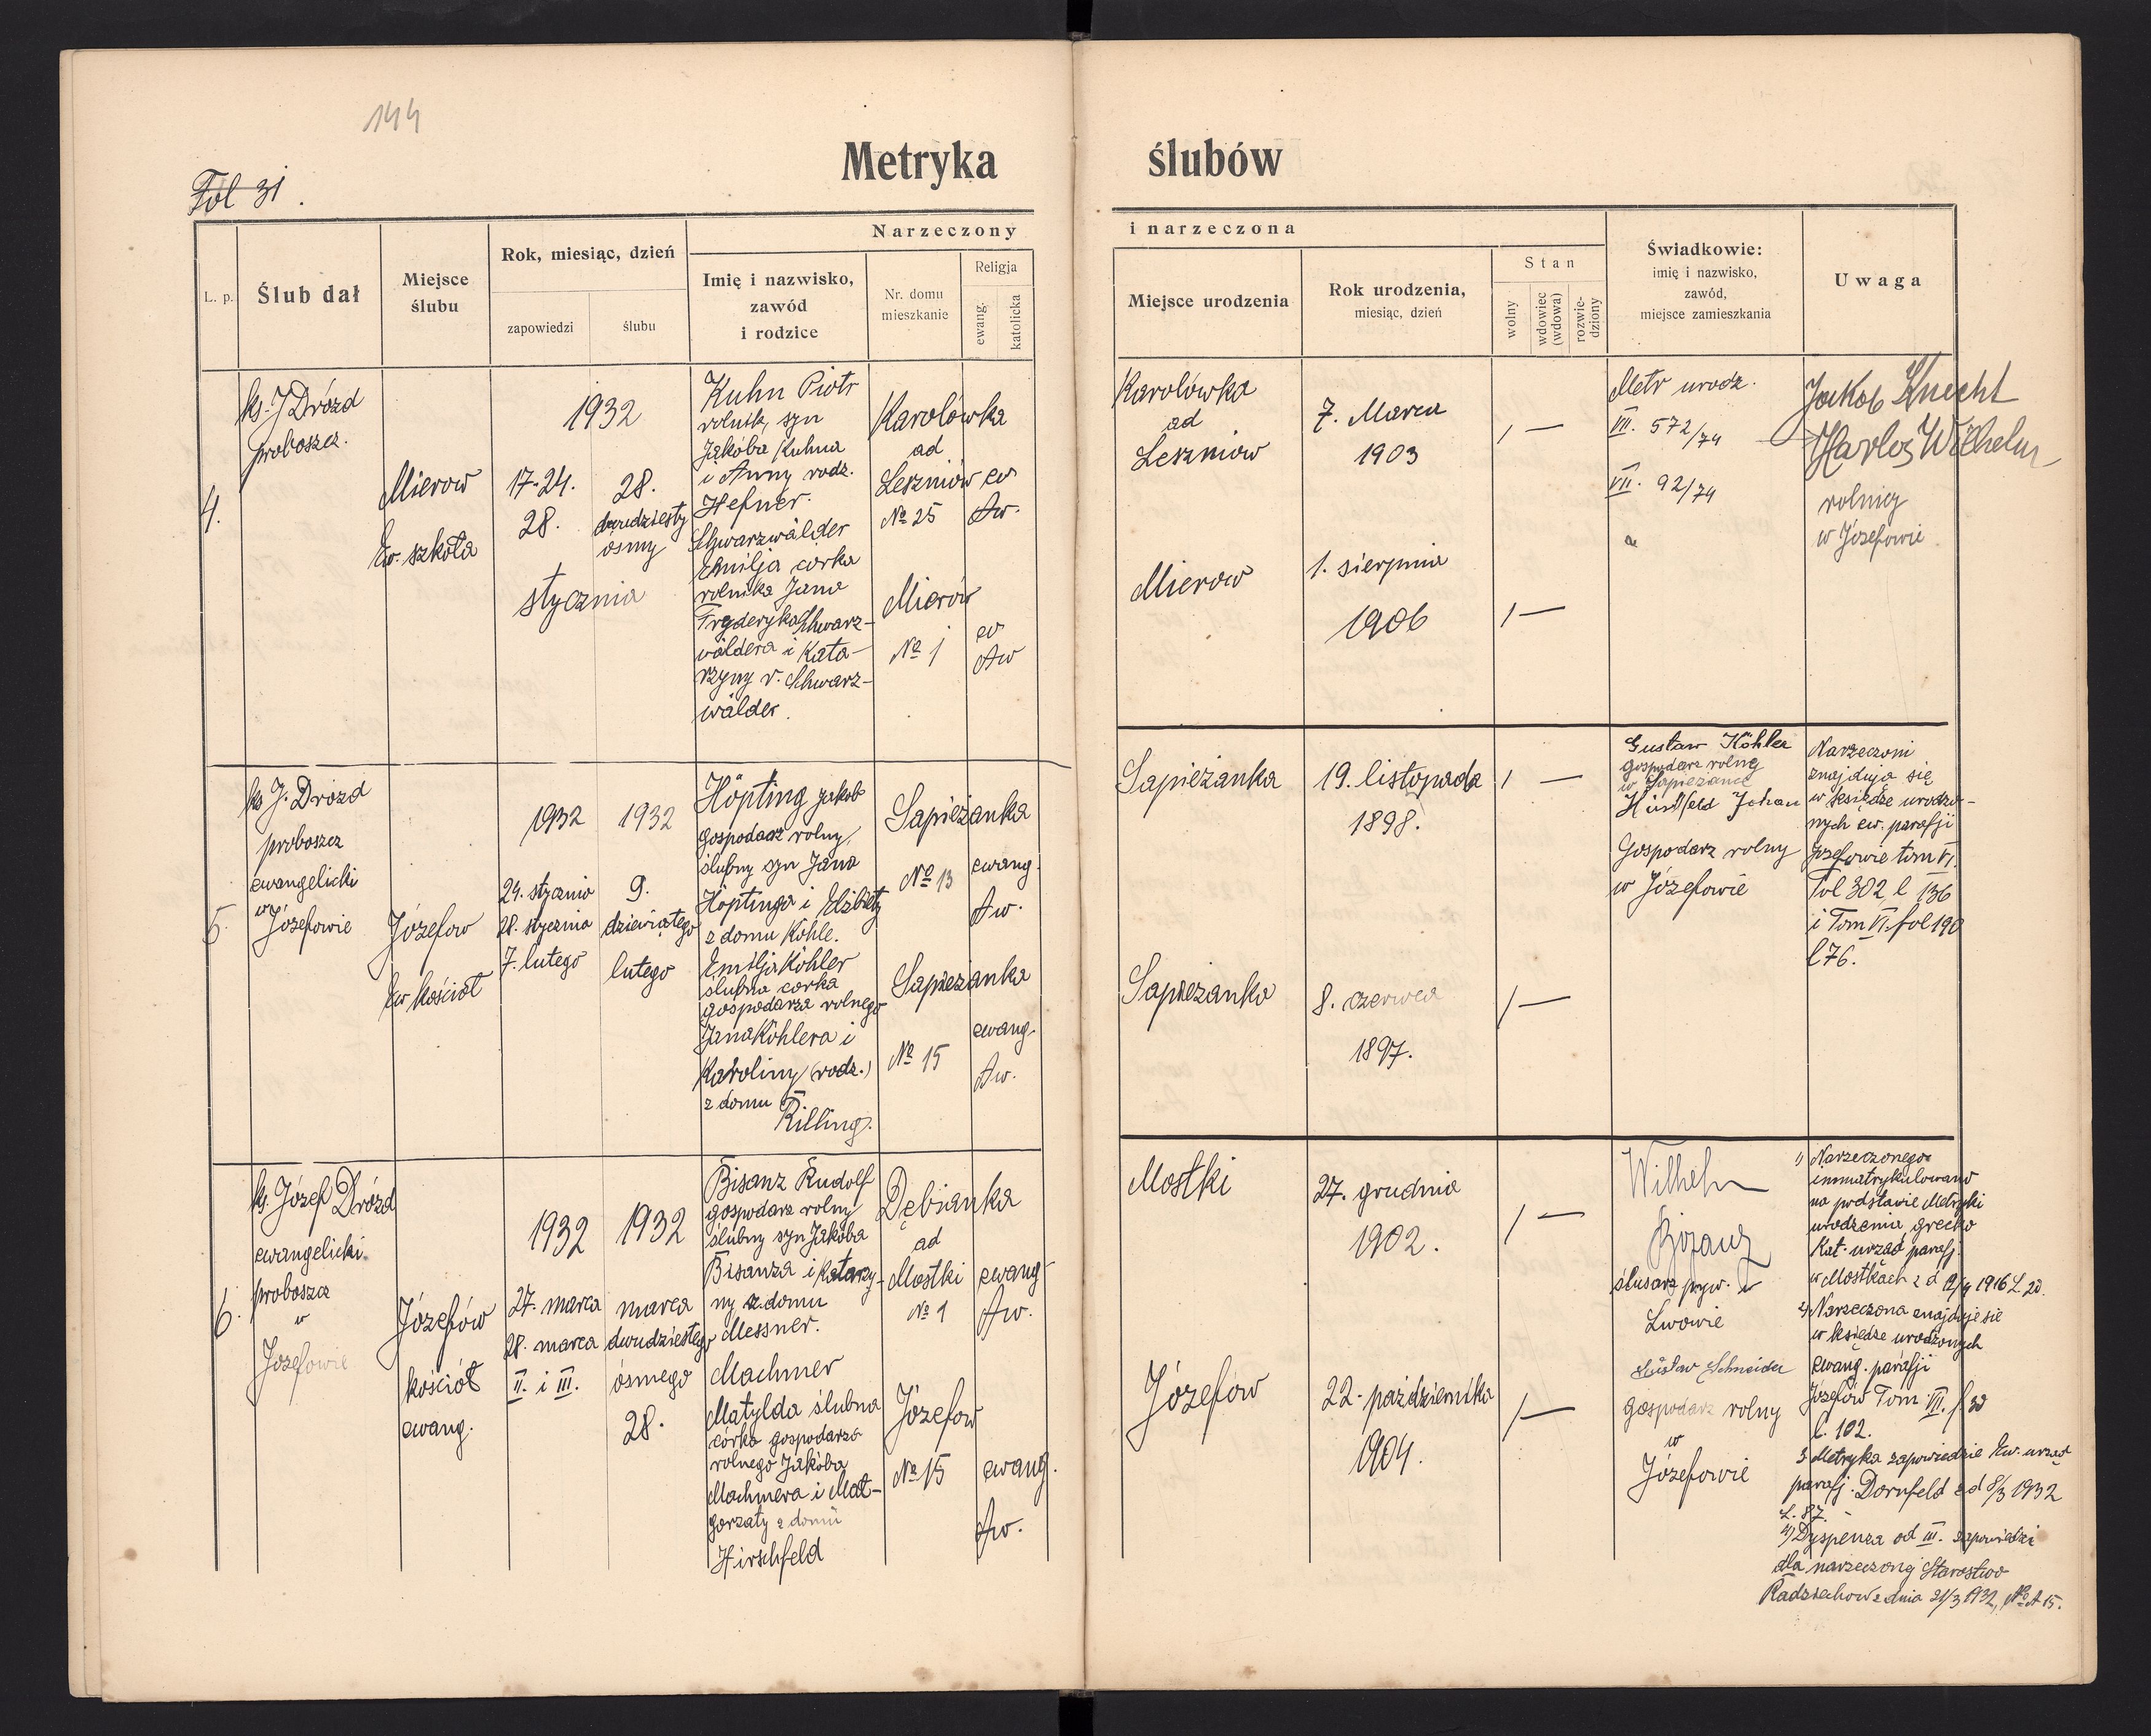 144
Metryka ślubów
Fol 31.
Narzeczony i narzeczona
L. p.
Ślub dał
Miejsce
ślubu
Rok, miesiąc, dzień
zapowiedzi
ślubu
Imię i nazwisko,
zawód
i rodzice
Nr. domu
mieszkanie
Religja
ewang.
katolicka
Miejsce urodzenia
Rok urodzenia,
miesiąc, dzień
Stan
wolny
wdowiec
(wdowa)
rozwie-
dziony
Świadkowie:
imię i nazwisko,
zawód,
miejsce zamieszkania
Uwaga
4.
ks. J Drózd
proboszcz.
Mierow
Ew. szkoła
1932
17. 24.
28.
28.
dwudziesty
ósmy
stycznia
Kuhn Piotr
rolnik, syn
Jakóba Kuhna
i Anny rodz.
Hefner.
Schwarzwälder
Emilja córka
rolnika Jana
Fryderyka Schwarz-
wäldera i Kata-
rzyny r. Schwarz-
wälder.
Karolówka
ad
Leszniów
№ 25
ev
Aw.
Mierów
№ 1
ev
Aw
Karolówka
ad
Leszniow
7. Marca
1903
1 —
Mierow
1. sierpnia
1906
1 —
Metr urodz.
VII. 572/74
VII. 92/74
Jakob Knecht
Harlos Wilhelm
rolnicy
w Józefowie
5.
ks J. Drózd
proboszcz
ewangelicki
w
Józefowie
Józefow
Ew kościoł
1932
24. stycznia
28. stycznia
7. lutego
1932
9.
dziewiątego
lutego
Höpting Jakob
gospodarz rolny,
ślubny syn Jana
Höptinga i Elżbiety
z domu Köhle.
Emilja Köhler
ślubna córka
gospodarza rolnego
Jana Köhlera i
Karoliny (rodz.)
z domu
Rilling.
Sapieżanka
№ 13
ewang.
Aw.
Sapieżanka
№ 15
ewang.
Aw.
Sapieżanka
19. listopada
1898.
1 —
Sapieżanka
8. czerwca
1897.
1 —
Gustaw Köhler
gospodarz rolny
w Sapieżance
Johan
Gospodarz rolny
w Józefowie
Narzeczoni
znajdują się
w księdze urodzo-
nych ew. parafji
Józefowie tom VI.
Fol 302 l 136
i Tom VI. fol 190
l 76.
6.
ks. Józef Drózd
ewangelicki
proboszcz
w
Józefowie
Józefów
kościół
ewang.
1932
27. marca
28. marca
II. i III.
1932
marca
dwudziestego
ósmego
28.
Bisanz Rudolf
gospodarz rolny
ślubny syn Jakóba
Bisanza i Katarzy-
ny z domu
Messner.
Machmer
Matylda ślubna
córka gospodarza
rolnego Jakóba
Machmera i Mał-
gorzaty z domu
Hirschfeld
Dębianka
ad
Mostki
№ 1
ewang
Aw.
Józefow
№ 15
ewang.
Aw.
Mostki
27. grudnia
1902.
1 —
Józefów
22. października
1904.
1 —
Wilhelm
Bisanz
ślusarz pryw. w
Lwowie
Gustaw Schneider
gospodarz rolny
w
Józefowie
1) Narzeczonego
immatrykulowano
na podstawie Metryki
urodzenia grecko
Kat. urząd parafj.
w Mostkach z d 1916 L. 20.
2) Narzeczona znajduje się
w księdze urodzonych
ewang. parafji
Józefów Tom VII. f 30
l. 102.
3 Metryka zapowiedzie Ew. urząd
parafj. Dornfeld z d 8/3 1932
L. 87.
4) Dyspenza od III. zapowiedzi
dla narzeczonej Starostwo
Radziechow z dnia 21/3 1932, № A 15.